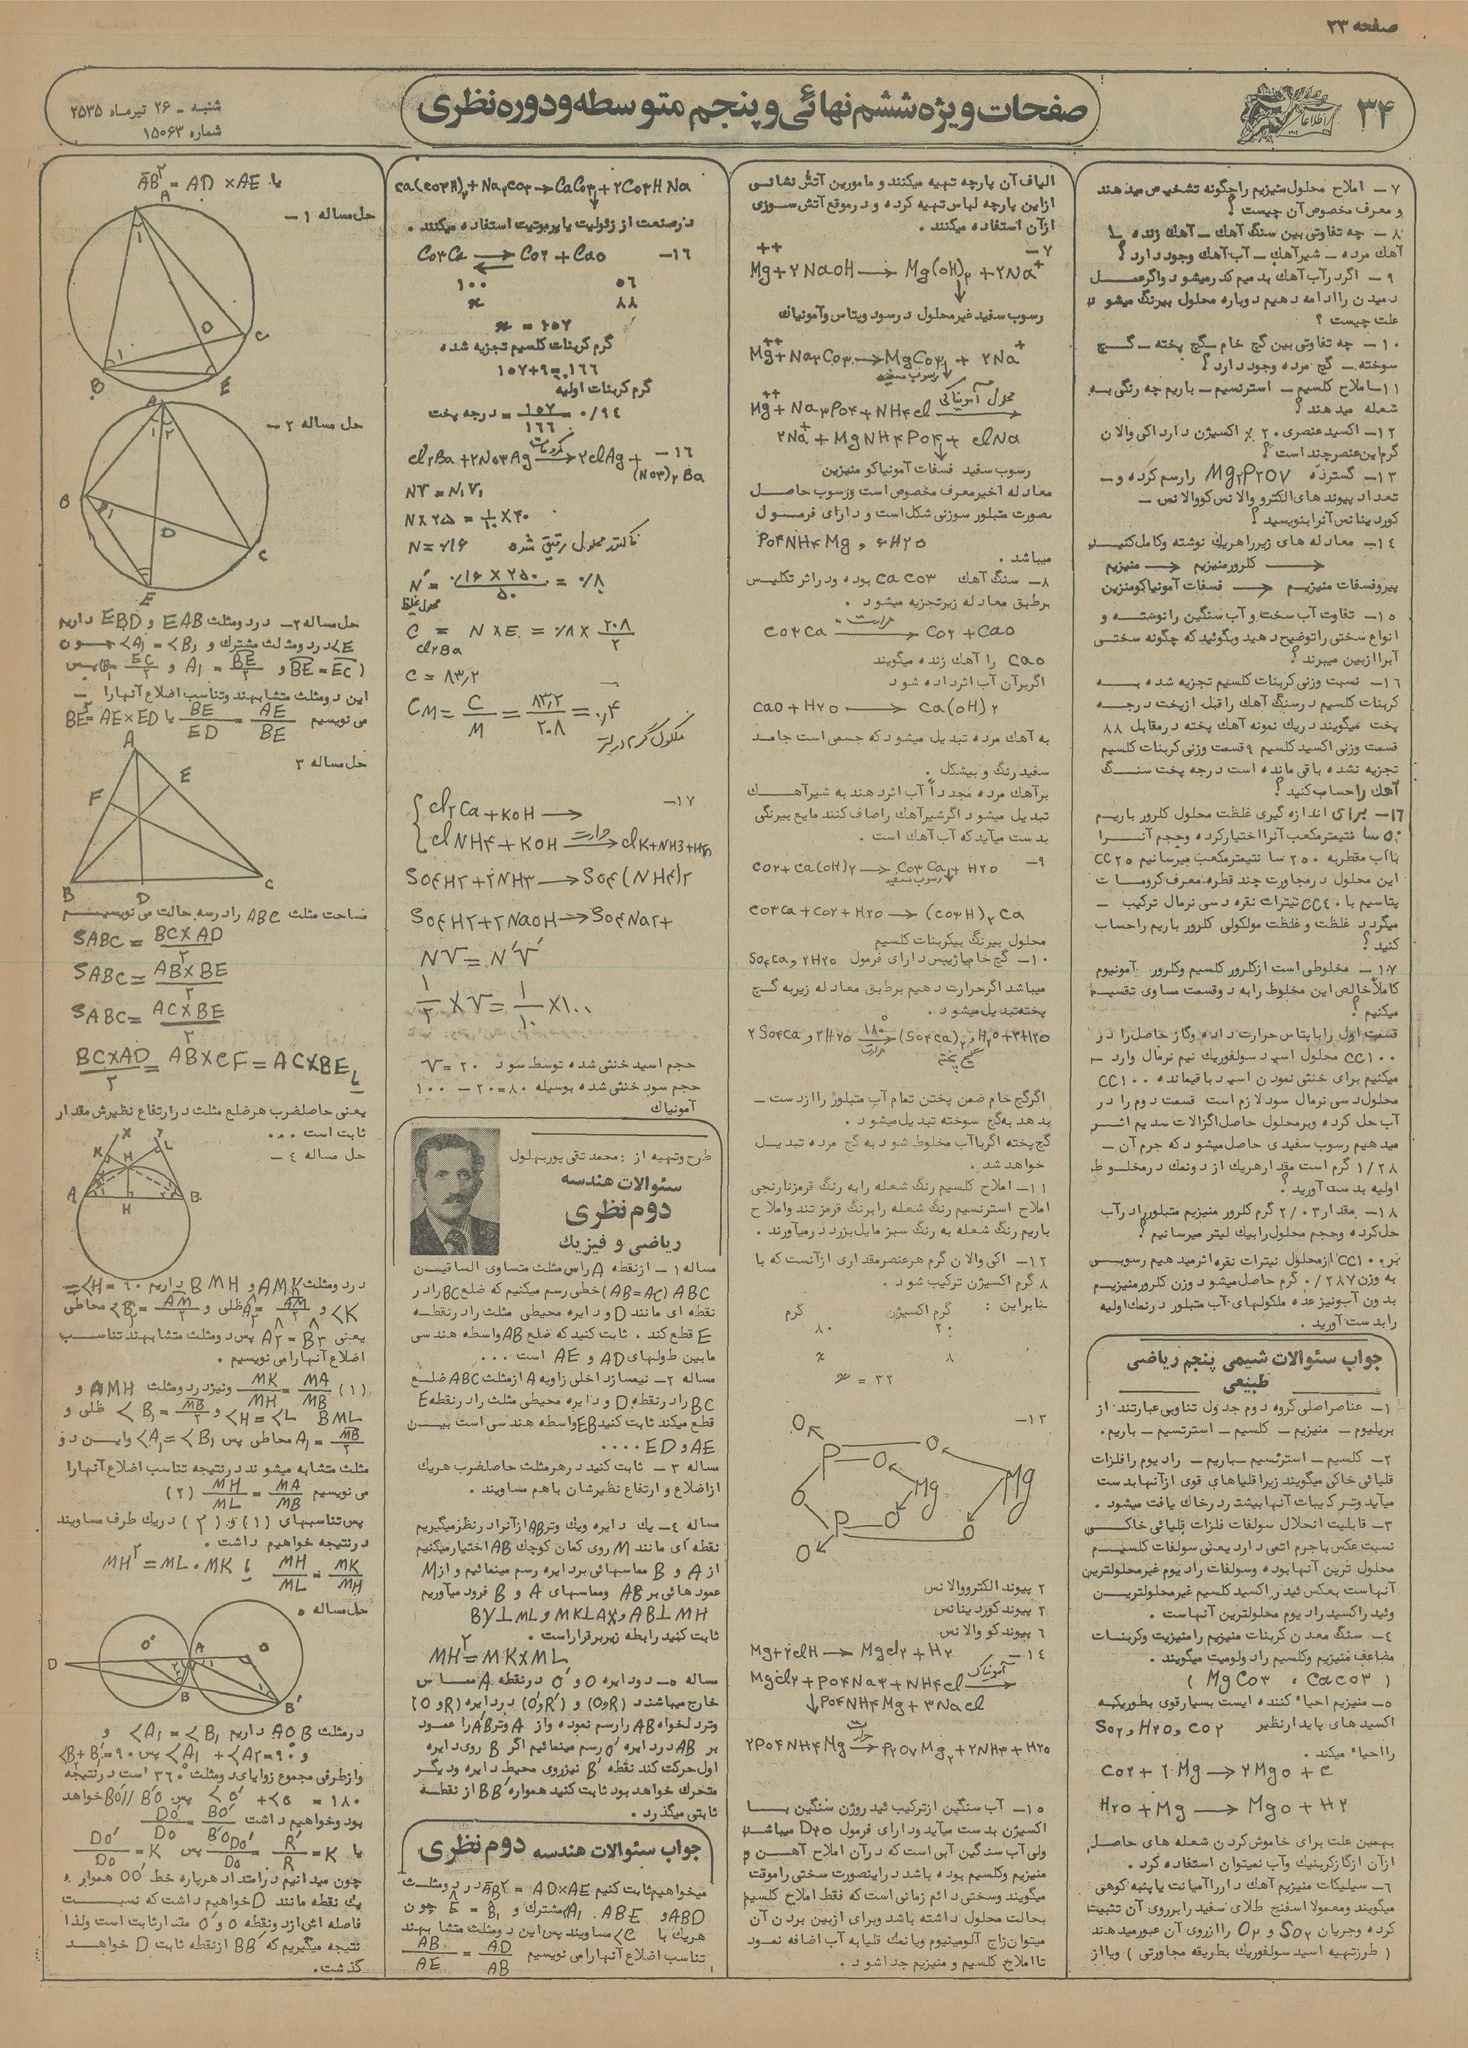 صفحه ۲۳
۳۴
اطلاعات
صفحات ویژه ششم نهائی و پنجم متوسطه و دوره نظری
شنبه - ۲۶ تیرماه ۲۵۳۵
شماره ۱۵۰۶۳
۷ - املاح محلول منیزیم را چگونه تشخیص میدهند
و معرف مخصوص آن چیست ؟
۸ - چه تفاوتی بین سنگ آهك - آهك زنده -
آهك مرده - شیرآهك - آب آهك وجود دارد ؟
۹ - اگر در آب آهك بدمیم کدر میشود و اگر عمل
دمیدن را ادامه دهیم دوباره محلول بیرنگ میشود
علت چیست ؟
۱۰ - چه تفاوتی بین گچ خام - گچ پخته - گچ
سوخته - گچ مرده وجود دارد ؟
۱۱ - املاح کلسیم - استرنسیم - باریم چه رنگی به
شعله میدهند ؟
۱۲ - اکسید عنصری ۲۰ ٪ اکسیژن دارد اکی والان
گرم این عنصر چند است ؟
۱۳ - گسترده Mg۲P۲O۷ را رسم کرده و -
تعداد پیوندهای الکترووالانس کووالانس -
کوردینانس آنرا بنویسید ؟
۱۴ - معادله های زیر را هریك نوشته و کامل کنید
منیزیم ← کلرور منیزیم ←
پیروفسفات منیزیم ← فسفات آمونیاکو منیزین
۱۵ - تفاوت آب سخت و آب سنگین را نوشته و
انواع سختی را توضیح دهید و بگوئید که چگونه سختی
آبرا از بین میبرند ؟
۱۶ - نسبت وزنی کربنات کلسیم تجزیه شده به
کربنات کلسیم در سنگ آهك را قبل از پخت درجه
پخت میگویند در یك نمونه آهك پخته در مقابل ۸۸
قسمت وزنی اکسید کلسیم ۹ قسمت وزنی کربنات کلسیم
تجزیه نشده باقی مانده است درجه پخت سنگ
آهك را حساب کنید ؟
۱۶ - برای اندازه گیری غلظت محلول کلرور باریم
۵۰ سانتیمتر مکعب آنرا اختیار کرده و حجم آنرا
با آب مقطر به ۲۵۰ سانتیمتر مکعب میرسانیم CC۲۵
این محلول در مجاورت چند قطره معرف کرومات
پتاسیم با CC۴۰ نیترات نقره دسی نرمال ترکیب -
میگردد غلظت و غلظت مولکولی کلرور باریم را حساب
کنید ؟
۱۷ - مخلوطی است از کلرور کلسیم و کلرور آمونیوم
کاملاً خالص این مخلوط را به دو قسمت مساوی تقسیم
میکنیم ؟
قسمت اول را با پتاس حرارت داده و گاز حاصل را در
CC۱۰۰ محلول اسید سولفوریك نیم نرمال وارد -
میکنیم برای خنثی نمودن اسید باقیمانده CC۱۰۰
محلول دسی نرمال سود لازم است قسمت دوم را در
آب حل کرده و بر محلول حاصل اگزالات سدیم اثر
میدهیم رسوب سفیدی حاصل میشود که جرم آن -
۱/۲۸ گرم است مقدار هریك از دو نمك در مخلوط
اولیه بدست آورید ؟
۱۸ - مقدار ۲/۰۳ گرم کلرور منیزیم متبلور را در آب
حل کرده و حجم محلول را بیك لیتر میرسانیم ؟
بر CC۱۰۰ از محلول نیترات نقره اثر میدهیم رسوبی
به وزن ۰/۲۸۷ گرم حاصل میشود وزن کلرور منیزیم
بدون آب و نیز عده ملکولهای آب متبلور در نمك اولیه
را بدست آورید .
جواب سئوالات شیمی پنجم ریاضی
طبیعی
۱ - عناصر اصلی گروه دوم جدول تناوبی عبارتند از
بریلیوم - منیزیم - کلسیم - استرنسیم - باریم.
۲ - کلسیم - استرنسیم - باریم - رادیوم را فلزات
قلیائی خاکی میگویند زیرا قلیاهای قوی از آنها بدست
میآید و ترکیبات آنها بیشتر در خاك یافت میشود .
۳ - قابلیت انحلال سولفات فلزات قلیائی خاکی
نسبت عکس با جرم اتمی دارد یعنی سولفات کلسیم
محلول ترین آنها بوده و سولفات رادیوم غیر محلولترین
آنهاست بعکس ئیدراکسید کلسیم غیر محلولترین
وئیدراکسید رادیوم محلولترین آنهاست .
۴ - سنگ معدن کربنات منیزیم را منیزیت و کربنات
مضاعف منیزیم و کلسیم را دولومیت میگویند .
( MgCo۳ ، CaCo۳ )
۵ - منیزیم احیاء کننده ایست بسیار قوی بطوریکه
اکسیدهای پایدار نظیر So۲ و H۲o و Co۲
را احیاء میکند .
Co۲ + ۲Mg → ۲Mgo + C
H۲o + Mg → Mgo + H۲
بهمین علت برای خاموش کردن شعله های حاصل
از آن از گاز کربنیك و آب نمیتوان استفاده کرد .
۶ - سیلیکات منیزیم آهك دار را آمیانت یا پنبه کوهی
میگویند و معمولا اسفنج طلای سفید را بر روی آن تثبیت
کرده و جریان So۲ و O۲ را از روی آن عبور میدهند
( طرز تهیه اسید سولفوریك بطریقه مجاورتی ) و یا از
الیاف آن پارچه تهیه میکنند و مامورین آتش نشانی
از این پارچه لباس تهیه کرده و در موقع آتش سوزی
از آن استفاده میکنند .
۷ -
Mg⁺⁺ + ۲NaOH → Mg(OH)۲ + ۲Na⁺
رسوب سفید غیر محلول در سود و پتاس و آمونیاك
Mg⁺⁺ + Na۲Co۳ → MgCo۳ + ۲Na⁺
رسوب سفید
Mg⁺⁺ + Na۳Po۴ + NH۴Cl محلول آمونیاکی →
۲Na⁺ + MgNH۴Po۴ + ClNa
رسوب سفید فسفات آمونیاکو منیزین
معادله اخیر معرف مخصوص است و رسوب حاصل
بصورت متبلور سوزنی شکل است و دارای فرمول
Po۴NH۴Mg , ۶H۲o
میباشد .
۸ - سنگ آهك CaCo۳ بوده و در اثر تکلیس
بر طبق معادله زیر تجزیه میشود .
Co۳Ca حرارت → Co۲ + Cao
Cao را آهك زنده میگویند
اگر بر آن آب اثر داده شود
Cao + H۲o → Ca(oH)۲
به آهك مرده تبدیل میشود که جسمی است جامد
سفید رنگ و بیشکل .
بر آهك مرده مجدداً آب اثر دهند به شیرآهك
تبدیل میشود اگر شیر آهك را صاف کنند مایع بیرنگی
بدست میآید که آب آهك است .
۹ -
Co۲ + Ca(oH)۲ → Co۳Ca + H۲o
رسوب سفید
Co۳Ca + Co۲ + H۲o → (Co۳H)۲Ca
محلول بیرنگ بیکربنات کلسیم
۱۰ - گچ خام یا ژیپس دارای فرمول So۴Ca , ۲H۲o
میباشد اگر حرارت دهیم بر طبق معادله زیر به گچ
پخته تبدیل میشود .
۲So۴Ca , ۲H۲o ۱۸۰° حرارت → (So۴Ca)۲, H۲o + ۳H۲o
گچ پخته
اگر گچ خام ضمن پختن تمام آب متبلور را از دست -
بدهد به گچ سوخته تبدیل میشود .
گچ پخته اگر با آب مخلوط شود به گچ مرده تبدیل
خواهد شد .
۱۱ - املاح کلسیم رنگ شعله را به رنگ قرمز نارنجی
املاح استرنسیم رنگ شعله را برنگ قرمز تند و املاح
باریم رنگ شعله به رنگ سبز مایل بزرد در میآورند .
۱۲ - اکی والان گرم هر عنصر مقداری از آنست که با
۸ گرم اکسیژن ترکیب شود .
بنابراین : گرم اکسیژن گرم
۲۰ ۸۰
۸ x
x = ۳۲
۱۳ -
O P O O Mg Mg O P O O O
۲ پیوند الکترووالانس
۲ پیوند کوردینانس
۶ پیوند کووالانس
۱۴ -
Mg + ۲ClH → MgCl۲ + H۲
MgCl۲ + Po۴Na۳ + NH۴Cl آمونیاك →
Po۴NH۴Mg + ۳NaCl
۲Po۴NH۴Mg حرارت → P۲o۷Mg۲ + ۲NH۳ + H۲o
۱۵ - آب سنگین از ترکیب ئیدروژن سنگین با
اکسیژن بدست میآید و دارای فرمول D۲o میباشد
ولی آب سنگین آبی است که در آن املاح آهن و
منیزیم و کلسیم بوده باشد در اینصورت سختی را موقت
میگویند و سختی دائم زمانی است که فقط املاح کلسیم
بحالت محلول داشته باشد و برای از بین بردن آن
میتوان زاج آلومینیوم و یا نمك قلیا به آب اضافه نمود
تا املاح کلسیم و منیزیم جدا شود .
Ca(Co۳H)۲ + Na۲Co۳ → CaCo۳ + ۲Co۳HNa
در صنعت از زئولیت یا پرموتیت استفاده میکنند .
۱۶ - Co۳Ca ⇄ Co۲ + Cao
۱۰۰ ۵۶
x ۸۸
x = ۱۵۷
گرم کربنات کلسیم تجزیه شده
۱۵۷+۹=۱۶۶
گرم کربنات اولیه
درجه پخت = ۱۵۷/۱۶۶ = ۰/۹۴
۱۶ - Cl۲Ba + ۲No۳Ag کرومات → ۲ClAg + (No۳)۲Ba
NV = N₁V₁
N×۲۵ = ۱/۱۰ × ۴۰
N = ۰/۱۶ فاکتور محلول رقیق شده
N' = ۰/۱۶ × ۲۵۰ / ۵۰ = ۰/۸
محلول غلیظ
C = N×E = ۰/۸ × ۲۰۸/۲
Cl۲Ba
C = ۸۳,۲
CM = C/M = ۸۳,۲/۲۰۸ = ۰,۴
ملکول گرم در لیتر
۱۷ -
Cl۲Ca + KOH →
ClNH۴ + KOH حرارت → ClK + NH۳ + H۲o
So۴H۲ + ۲NH۳ → So۴(NH۴)۲
So۴H۲ + ۲NaOH → So۴Na۲ +
NV = N'V'
۱/۲ × V = ۱/۱۰ × ۱۰۰
حجم اسید خنثی شده توسط سود V = ۲۰
حجم سود خنثی شده بوسیله ۱۰۰ - ۲۰ = ۸۰
آمونیاك
طرح و تهیه از : محمد تقی پوربهلول
سئوالات هندسه
دوم نظری
ریاضی و فیزیك
مساله ۱ - از نقطه A راس مثلث متساوی الساقین
ABC (AB=AC) خطی رسم میکنیم که ضلع BC را در
نقطه ای مانند D و دایره محیطی مثلث را در نقطه
E قطع کند . ثابت کنید که ضلع AB واسطه هندسی
مابین طولهای AD و AE است ...
مساله ۲ - نیمساز داخلی زاویه A از مثلث ABC ضلع
BC را در نقطه D و دایره محیطی مثلث را در نقطه E
قطع میکند ثابت کنید EB واسطه هندسی است بین
AE و ED ....
مساله ۳ - ثابت کنید در هر مثلث حاصلضرب هریك
از اضلاع و ارتفاع نظیرشان باهم مساویند .
مساله ۴ - یك دایره و یك وتر AB از آنرا در نظر میگیریم
نقطه ای مانند M روی کمان کوچك AB اختیار میکنیم
از A و B مماسهائی بر دایره رسم مینمائیم و از M
عمودهائی بر AB و مماسهای A و B فرود میآوریم
MH⊥AB و MK⊥AX و ML⊥BY
ثابت کنید رابطه زیر برقرار است .
MH² = MK×ML
مساله ۵ - دو دایره O و O' در نقطه A مماس
خارج میباشند (O و R) و (O' و R') در دایره (O و R)
وتر دلخواه AB را رسم نموده و از A وتر AB' را عمود
بر AB در دایره O' رسم مینمائیم اگر B روی دایره
اول حرکت کند نقطه B' نیز روی محیط دایره دیگر
متحرك خواهد بود ثابت کنید همواره BB' از نقطه
ثابتی میگذرد .
جواب سئوالات هندسه دوم نظری
میخواهیم ثابت کنیم AB² = AD×AE در دو مثلث
ABD و ABE A₁ مشترك و B₁ = E چون
هریك با C> مساویند پس این دو مثلث متشابهند
تناسب اضلاع آنها را می نویسیم AB/AE = AD/AB
یا AB² = AD×AE
حل مساله ۱ -
A 1 D C B 1 E
حل مساله ۲ -
A 1 2 B 1 D C E
حل مساله ۲ - در دو مثلث EAB و EBD داریم
E> در دو مثلث مشترك و A₁> = B₁> چون
(BE=EC و A₁ = BE/۲ و B₁ = EC/۲) پس
این دو مثلث متشابهند و تناسب اضلاع آنها را -
می نویسیم AE/BE = BE/ED یا BE² = AE×ED
حل مساله ۳
A E F B D C
مساحت مثلث ABC را در سه حالت می نویسیم
SABC = BC×AD/۲
SABC = AB×BE/۲
SABC = AC×BE/۲
یا BC×AD/۲ = AB×CF = AC×BE
یعنی حاصلضرب هر ضلع مثلث در ارتفاع نظیرش مقدار
ثابت است ...
حل مساله ۴ -
X Y K M L A H B
در دو مثلث AMK و BMH داریم H=۹۰> =
K> و A₂ = AM/۲ ظلی و B₂ = AM/۲ محاطی
یعنی A₂ = B₂ پس دو مثلث متشابهند تناسب
اضلاع آنها را می نویسیم .
(۱) MK/MH = MA/MB و نیز در دو مثلث AMH و
BML H> = L> و B₁> = MB/۲ ظلی و
A₁ = MB/۲ محاطی پس A₁> = B₁> و این دو
مثلث متشابه میشوند در نتیجه تناسب اضلاع آنها را
می نویسیم MH/ML = MA/MB (۲)
پس تناسبهای (۱) و (۲) در یك طرف مساویند
در نتیجه خواهیم داشت .
MK/MH = MH/ML یا MH² = ML.MK
حل مساله ۵
D O' A O B B'
در مثلث AOB داریم A₁> = B₁> و
و A₁> + A₂> = ۹۰° پس B+B₁=۹۰>
و از طرفی مجموع زوایای دو مثلث ۳۶۰° است در نتیجه
۱۸۰ = O> + O'> پس B'O' // BO خواهد
بود و خواهیم داشت DO'/DO = B'O'/BO
یا R'/R = K پس DO'/DO = K
چون میدانیم در امتداد هر پاره خط OO' همواره
یك نقطه مانند D خواهیم داشت که نسبت
فاصله اش از دو نقطه O و O' مقدار ثابت است ولذا
نتیجه میگیریم که BB' از نقطه ثابت D خواهد
گذشت.